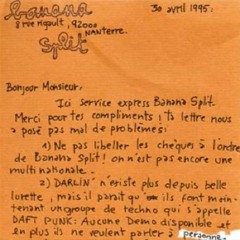 banana
split
8 rue rigault, 92000
NANTERRE.
30 avril 1995.
Bonjour Monsieur,
Ici service express Banana Split.
Merci pour tes compliments ; ta lettre nous
a posé pas mal de problèmes:
1) Ne pas libeller les chèques à l'ordre
de Banana Split! on n'est pas encore une
multinationale.
2) DARLIN' n'existe plus depuis belle
lurette, mais il parait qu' ils font main-
tenant un groupe de techno qui s'appelle
DAFT PUNK: Aucune Demo disponible et
en plus ils ne veulent parler à personne.